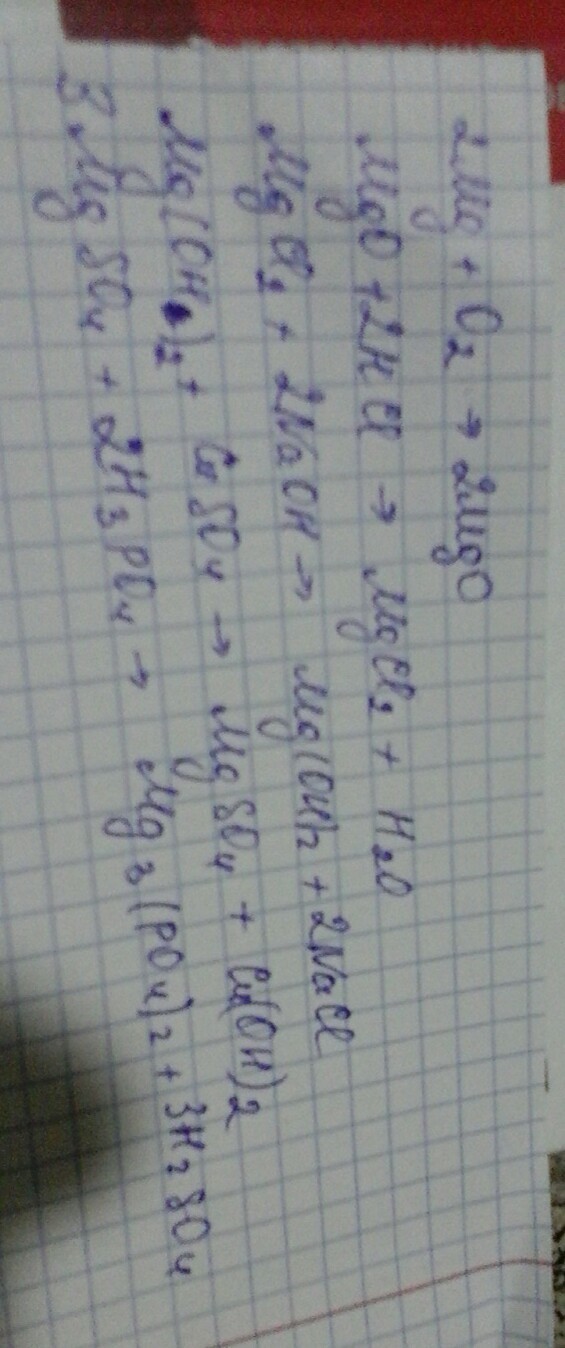 2Mg + O2 → 2MgO
MgO + 2HCl → MgCl2 + H2O
MgCl2 + 2NaOH → Mg(OH)2 + 2NaCl
Mg(OH)2 + CuSO4 → MgSO4 + Cu(OH)2
3MgSO4 + 2H3PO4 → Mg3(PO4)2 + 3H2SO4